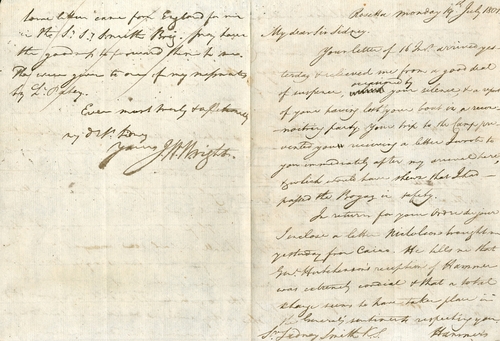 Rosetta Monday 19th July 1801
My dear Sir Sidney,
Your letter of 16 Inst. arrived yes-
terday & relieved me from a good deal
of suspence, occasioned by your silence & a report
of your having left your boat on a
party. Your trip to the Camp pre-
vented your receiving a letter I wrote to
you immediately after my arrival here
& which would have shewn that I had
passed the Bogaz in safety.
In return for your
I enclose a letter Nicholas brought me
yesterday from Cairo. He tells me that
Genl. Hutchinson's reception of Hammer
was extremely cordial & that a total
change seems to have taken place in
the General's sentiments respecting you
Sir Sidney Smith K.S.
Hammer's
some letters came from England for me
in the Sr. S. Smith Brig. Pray have
the goodness to forward them to me.
They were given to one of my
by Lt.
Ever most truly & affectionately
my dr. Sir Sidney
yours J. W. Wright.